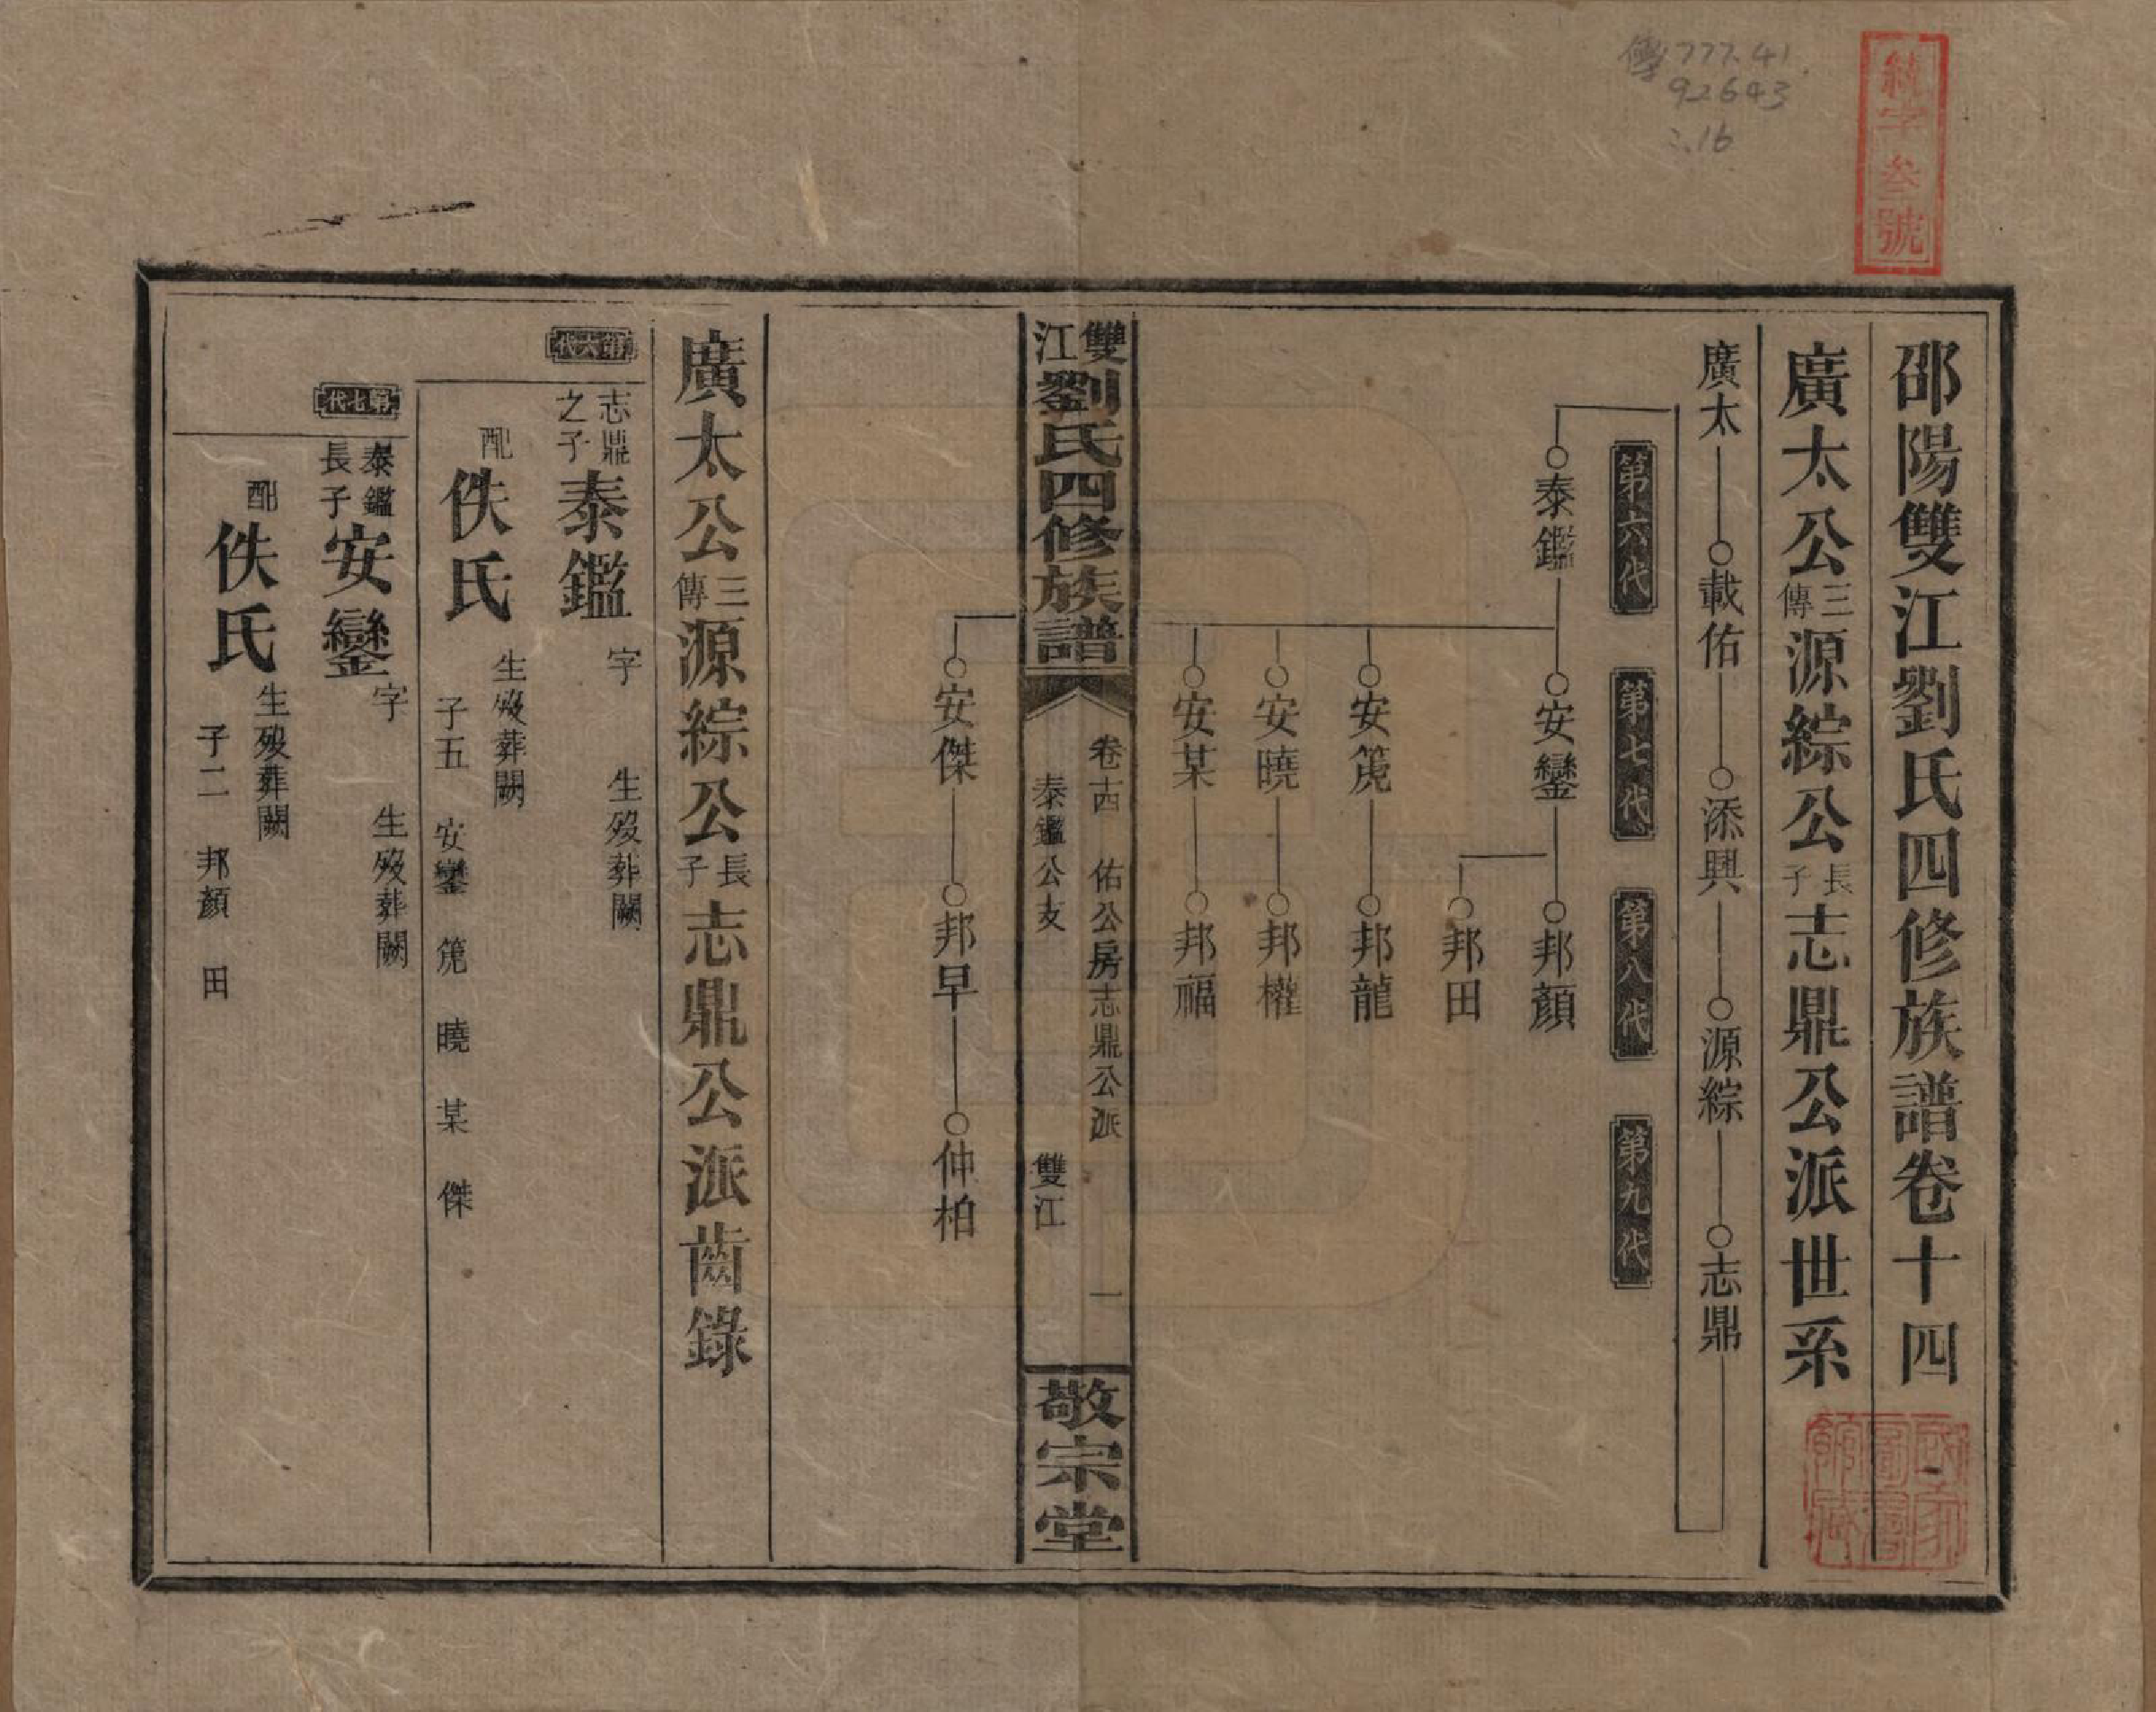 傳777.41
92643
:.16
號
邵陽雙江劉氏四修族譜卷十四
廣太公三傳源綜公長子志鼎公派世系
廣太 載佑 添興 源綜 志鼎
第六代 第七代 第八代 第九代
泰鑑 安鑾 邦顏
邦田
安箎 邦龍
安曉 邦權
安某 邦福
雙江劉氏四修族譜
卷十四 佑公房志鼎公派 一
泰鑑公支 雙江
敬宗堂
安傑 邦早 仲柏
廣太公三傳源綜公長子志鼎公派齒錄
第六代
志鼎之子泰鑑 字 生歿葬闕
配佚氏 生歿葬闕
子五 安鑾 箎 曉 某 傑
第七代
泰鑑長子安鑾 字 生歿葬闕
配佚氏 生歿葬闕
子二 邦顏 田